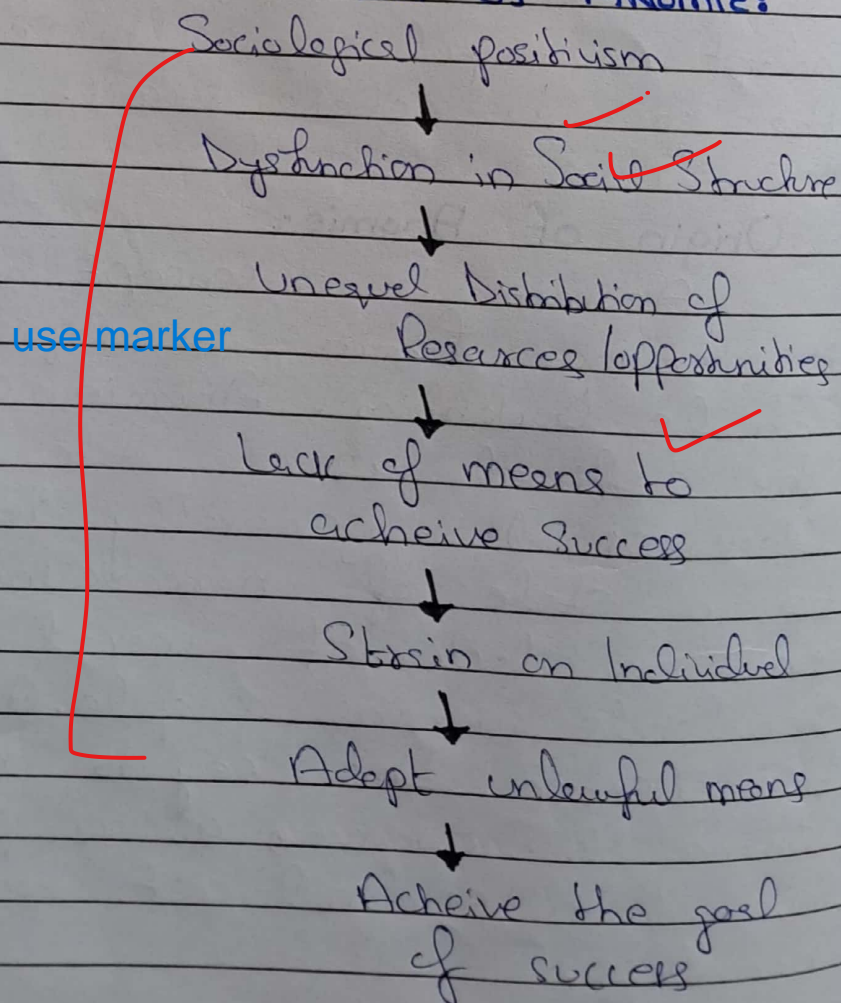 Anomie:
Sociological positivism
Dysfunction in Structure
Unequel Distribution of
Resources / opportunities
use marker
Lack of means to
acheive success
Strain on Individuel
Adopt unlawful means
Acheive the goal
of success